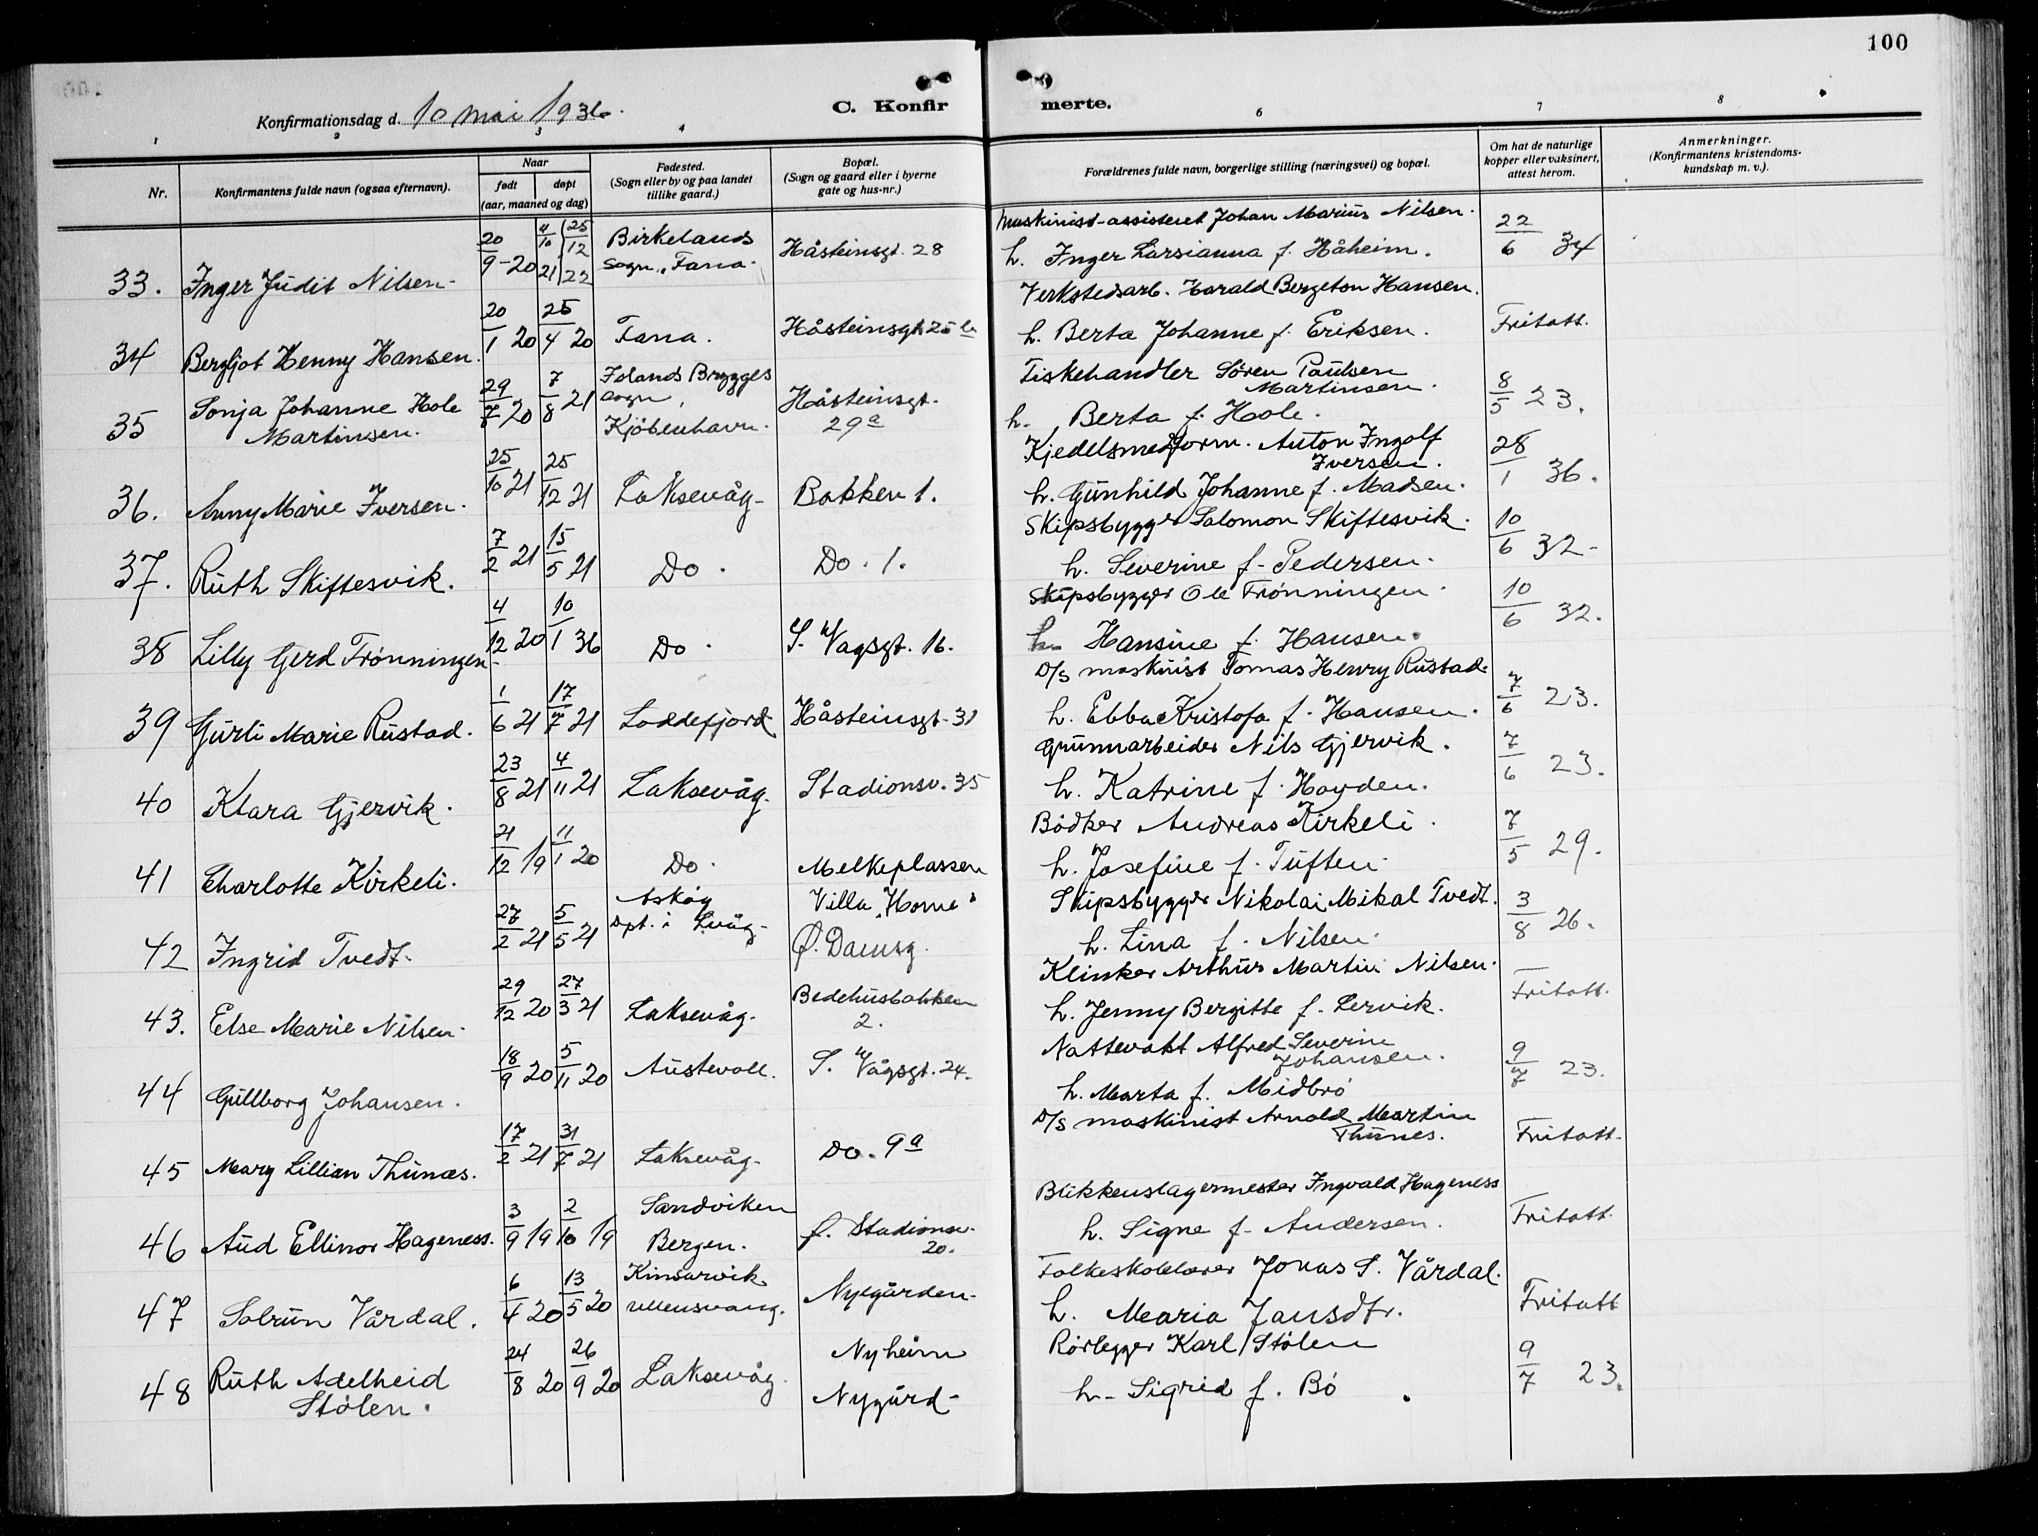 100
Konfirmationsdag d. 10 mai 1936.
C. Konfir
merte.
1 2 3 4 6 7 8
Nr.
Konfirmantens fulde navn (ogsaa efternavn).
Naar
født døpt
(aar, maaned og dag)
Fødested.
(Sogn eller by og paa landet
tillike gaard.)
Bopæl.
(Sogn og gaard eller i byerne
gate og hus-nr.)
Forældrenes fulde navn, borgerlige stilling (næringsvei) og bopæl.
Om hat de naturlige
kopper eller vaksinert,
attest herom.
Anmerkninger.
(Konfirmantens kristendoms-
kundskap m. v.).
33. Inger Judit Nilsen. 20/9-20 4/10 21 25/12 22 Birkelands Håsteinsgt. 28 Maskinist-assistent Johan Marius Nilsen. 22/6 34
sogn, Fana. h. Inger Larsianna f. Håheim.
34 Bergljot Henny Hansen. 20/1 20 25/4 20 Fana. Håsteinsgt 25 b Verkstedsarb. Harald Bergeton Hansen. Fritatt.
h. Berta Johanne f. Eriksen.
35 Sonja Johanne Hole 29/7 20 7/8 21 Islands Brygges Håsteinsgt. Fiskehandler Søren Paulsen 8/5 23.
Martinsen. sogn, 29a Martinsen.
Kjøbenhavn. h. Berta f. Hole.
36. Anny Marie Iversen. 25/10 21 25/12 21 Laksevåg Bakken 1. Kjedelsmedform. Anton Ingolf 28/1 36.
Iversen.
h. Gunhild Johanne f. Madsen.
37. Ruth Skiftesvik. 7/2 21 15/5 21 Do. Do. 1. Skipsbygger Salomon Skiftesvik. 10/6 32-
h. Severine f. Pedersen.
38 Lilly Gerd Trønningen 4/12 20 10/1 36 Do. S. Vagsgt. 16. Skipsbygger Ole Trønningen. 10/6 32.
h. Hansine f. Hansen.
39 Gurli Marie Rustad. 1/6 21 17/7 21 Loddefjord Håsteinsgt. 31 D/s maskinist Tomas Henry Rustad. 7/6 23.
h. Ebba Kristofa f. Hansen.
40 Klara Gjervik. 23/8 21 4/11 21 Laksevåg. Stadionsv. 35 Grunnarbeider Nils Gjervik. 7/6 23.
h. Katrine f. Hoyden.
41 Charlotte Kirkeli. 21/12 19 11/1 20 Do. Melkeplassen Bødker Andreas Kirkeli. 7/5 29.
h. Josefine f. Tuften.
42 Ingrid Tvedt. 27/2 21 5/5 21 Askøy Villa "Home" Skipsbygger Nikolai Mikal Tvedt. 3/8 26.
Dpt. i Lvåg. Ø. Damsg. h. Lina f. Nilsen.
43. Else Marie Nilsen. 29/12 20 27/3 21 Laksevåg. Bedehusbakken Klinker Arthur Martin Nilsen. Fritatt.
2. h. Jenny Bergitte f. Lervik.
44 Gullborg Johansen. 18/9 20 5/11 20 Austevoll. S. Vågsgt. 24. Nattevakt Alfred Severin 9/7 23.
Johansen.
h. Marta f. Midbrø
45 Mary Lillian Thunæs. 17/2 21 31/7 21 Laksevåg. Do. 9a D/s maskinist Arnold Martin Fritatt.
Thunes.
46 Aud Ellinor Hageness. 3/9 19 2/10 19 Sandviken Ø. Stadionsv. Blikkenslagermester Ingvald Hageness Fritatt.
Bergen. 20. h. Signe f. Andersen.
47 Solrun Vårdal. 6/4 20 13/5 20 Kinsarvik Nygården. Folkeskolelærer Jonas S. Vårdal. Fritatt
Ullensvang. h. Maria Jansdtr.
48 Ruth Adelheid 24/8 20 26/9 20 Laksevåg. Nyheim Rørlegger Karl Stølen 9/7 23.
Stølen. Nygård- h. Sigrid f. Bø